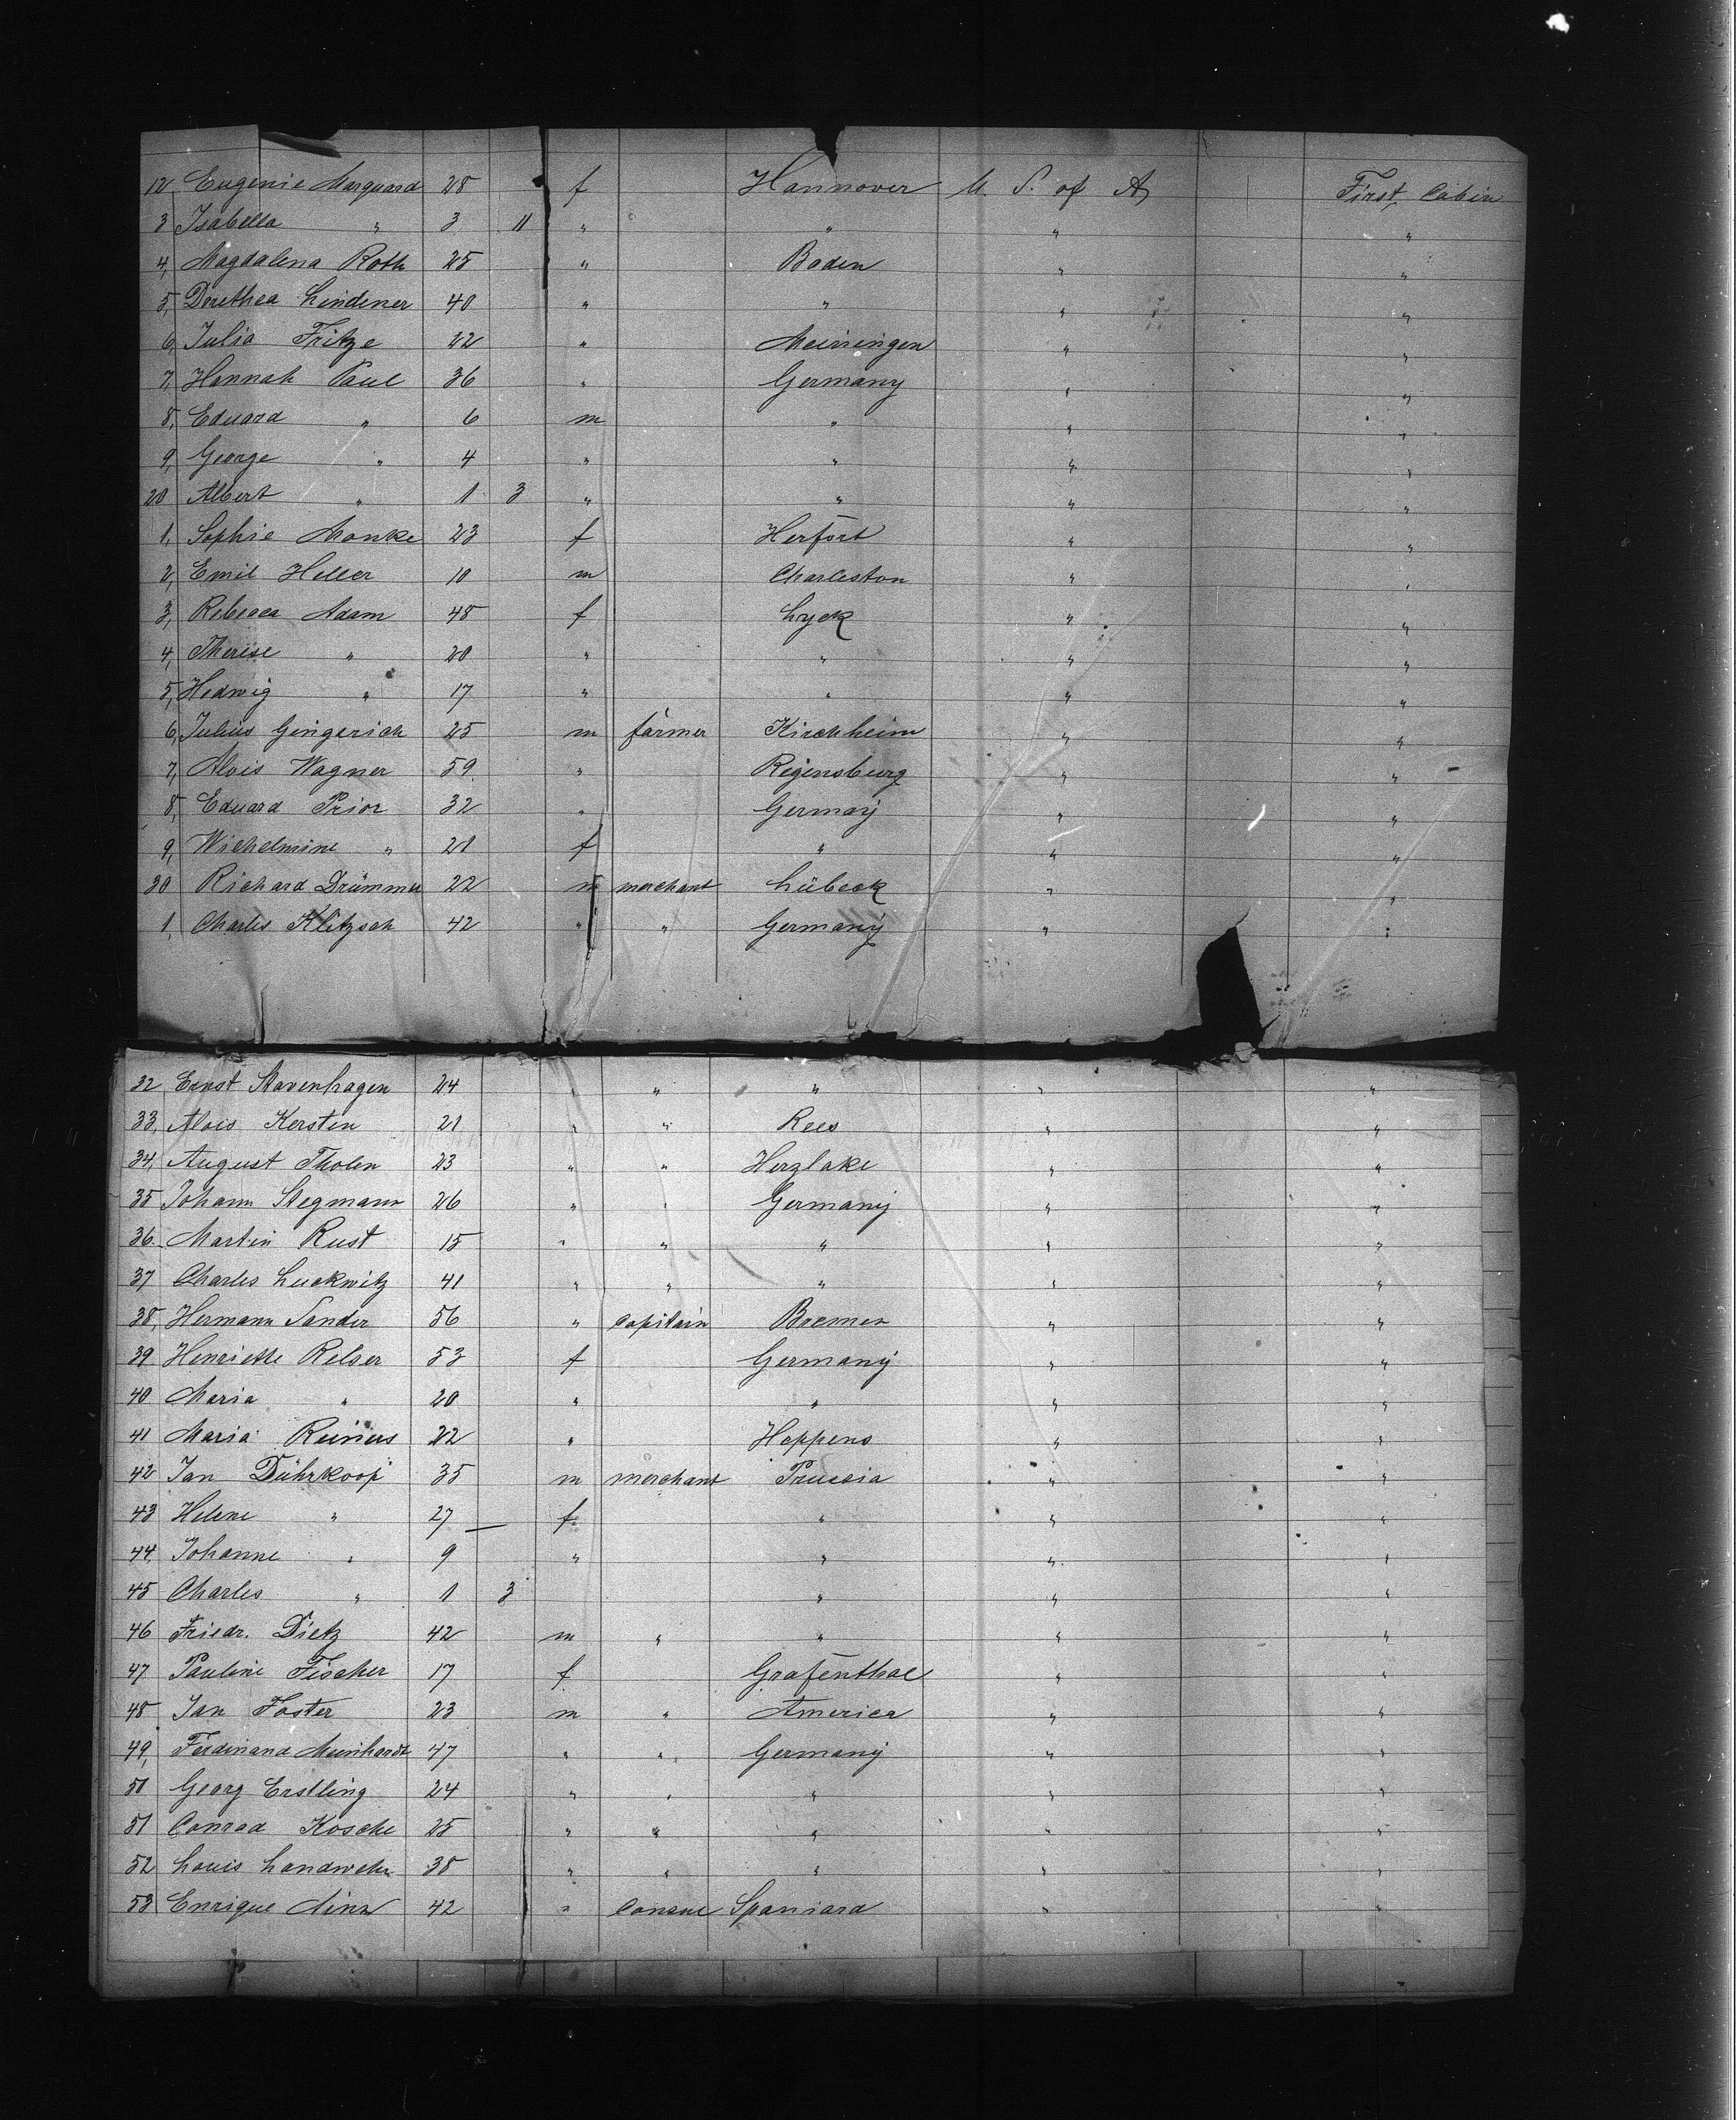 12 Eugenie Marquard 28 f Hannover U. S. of A, First, Cabin
3 Isabella " 3, 11 " " " "
4, Magdalena Roth 25 " Baden " "
5, Dorethea Lindener 40 " " " "
6, Julia Fritze 22 " Meiningen " "
7, Hannah Paul 36 " Germany " "
8, Eduard " 6 m " " "
9, George " 4 " " " "
20 Albert " 1 3 " " " "
1, Sophie Manke 23 f Herfort " "
2, Emil Heller 10 m Charleston " "
3, Rebecca Adam 48 f Lyck " "
4, Therese " 20 " " " "
5, Hedwig " 17 " " " "
6, Julius Gingerich 25 m farmer Kirchheim " "
7, Alois Wagner 59 " Regensburg " "
8, Eduard Prior 32 " Germany " "
9, Wilhelmine " 21 f " " "
30 Richard Drümmer 22 m merchant Lübeck " "
1, Charles Klitzsch 42 " " Germany " "
32 Ernst Stavenhagen 24 " " " " "
33, Alois Kersten 21 " " Rees " "
34, August Tholen 23 " " Herzlake " "
35 Johann Stegmann 26 " " Germany " "
36 Martin Rust 15 " " " " "
37 Charles Luckwitz 41 " " " " "
38, Hermann Sander 56 " Capitain Bremen " "
39 Henriette Relser 53 f Germany " "
40 Maria " 20 " " " "
41 Maria Reiners 22 " Heppens " "
42 Jan Dührkoop 35 m merchant Prussia " "
43 Helene " 27 — f " " "
44, Johanne " 9 " " " "
45 Charles " 1 3 " " "
46 Friedr. Dietz 42 m " " " "
47 Pauline Fischer 17 f Grafenthal " "
48 Jan Foster 23 m " America " "
49, Ferdinand Meinhardt 47 " " Germany " "
50 Georg Erstling 24 " " " " "
51 Conrad Kosche 25 " " " " "
52 Louis Landwehr 38 " " " " "
53 Enrique 42 " Consul Spaniard " "